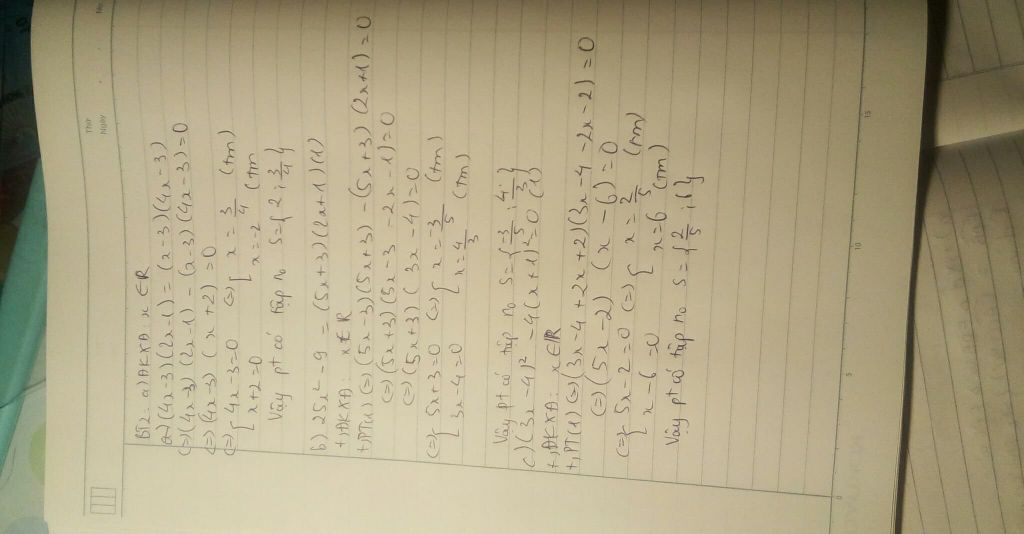 Thứ
Ngày
No.
BT2: a) ĐKXĐ: x ∈ R
a) (4x-3)(2x-1) = (x-3)(4x-3)
(=) (4x-3)(2x-1) - (x-3)(4x-3) = 0
(=) (4x-3) (x+2) = 0
(=) { 4x-3=0 (=) { x = 3/4 (tm)
x+2=0 x=-2 (tm
Vậy pt có tập no S={2; 3/4}
b) 25x² - 9 = (5x+3)(2x+1) (1)
+, ĐKXĐ: x ∈ R
+, PT(1) (=) (5x-3)(5x+3) - (5x+3)(2x+1) = 0
(=) (5x+3)(5x-3-2x-1) = 0
(=) (5x+3) (3x-4) = 0
(=) { 5x+3=0 (=) { x = -3/5 (tm)
3x-4=0 x = 4/3 (tm)
Vậy pt có tập no S={-3/5; 4/3}
c) (3x-4)² - 4(x+1)² = 0 (1)
+, ĐKXĐ: x ∈ R
+, PT(1) (=) (3x-4+2x+2)(3x-4-2x-2) = 0
(=) (5x-2) (x-6) = 0
(=) { 5x-2=0 (=) { x = 2/5 (tm)
x-6=0 x=6 (tm)
Vậy pt có tập no S={2/5; 1}
0
5
10
15